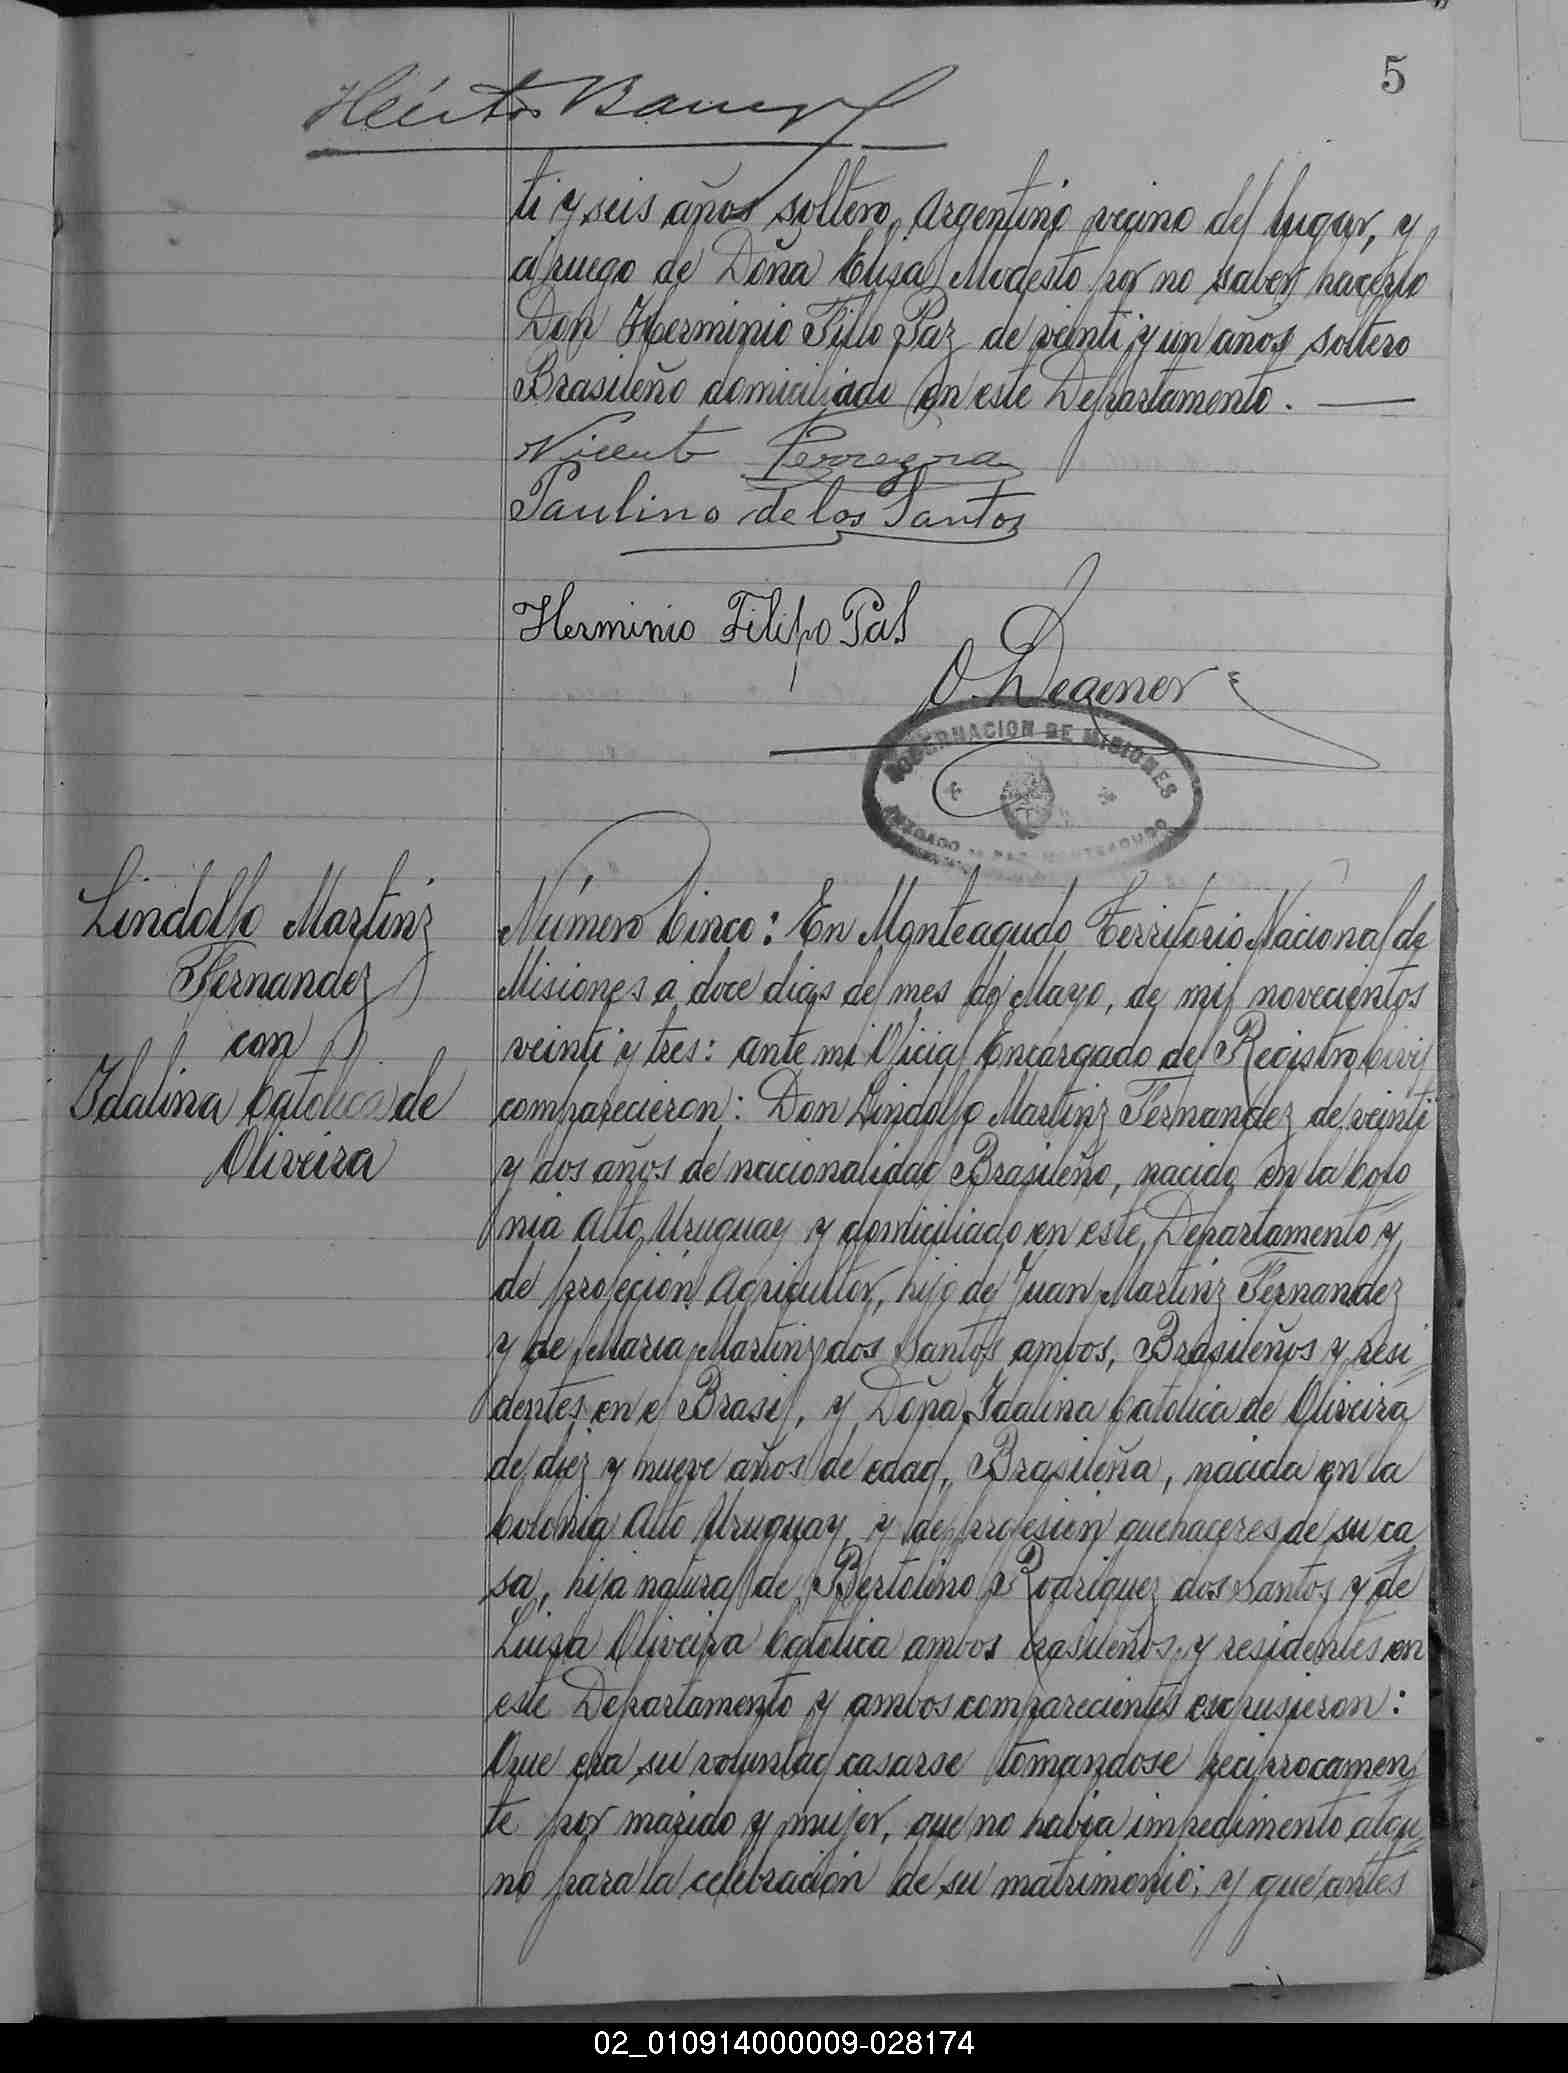 5
Héctor
ti y seis años soltero, Argentino vecino del lugar, y
a ruego de Doña Elisa Modesto por no saber hacerlo
Don Herminio Filio Paz de veinti y un años soltero
Brasileño domiciliado en este Departamento. —
Vicente Ferreyra
Paulino de los Santos
Herminio Filipo Pas
O. Degener
GOBERNACION DE MISIONES
JUZGADO DE PAZ MONTEAGUDO
Lindolfo Martinz
Fernandez
con
Idalina Catolica de
Oliveira
Número Cinco: En Monteagudo Territorio Nacional de
Misiones a doce dias del mes de Mayo, de mil novecientos
veinti y tres: ante mi Oficial Encargado del Registro Civil
comparecieron: Don Lindolfo Martinz Fernandez de veinti
y dos años de nacionalidad Brasileño, nacido en la Colo
nia Alto Uruguay y domiciliado en este Departamento y
de profecion Agricultor, hijo de Juan Martinz Fernandez
y de Maria Martinz dos Santos ambos, Brasileños y resi
dentes en el Brasil, y Doña Idalina Catolica de Oliveira
de diez y nueve años de edad, Brasileña, nacida en la
Colonia Alto Uruguay, y de profesion quehaceres de su ca
sa, hija natural de Bertolino Rodriguez dos Santos y de
Luisa Oliveira Catolica ambos brasileños y residentes en
este Departamento y ambos comparecientes expusieron:
Que era su voluntad casarse tomandose reciprocamen
te por marido y mujer, que no habia impedimento algu
no para la celebracion de su matrimonio; y que antes
02_010914000009-028174